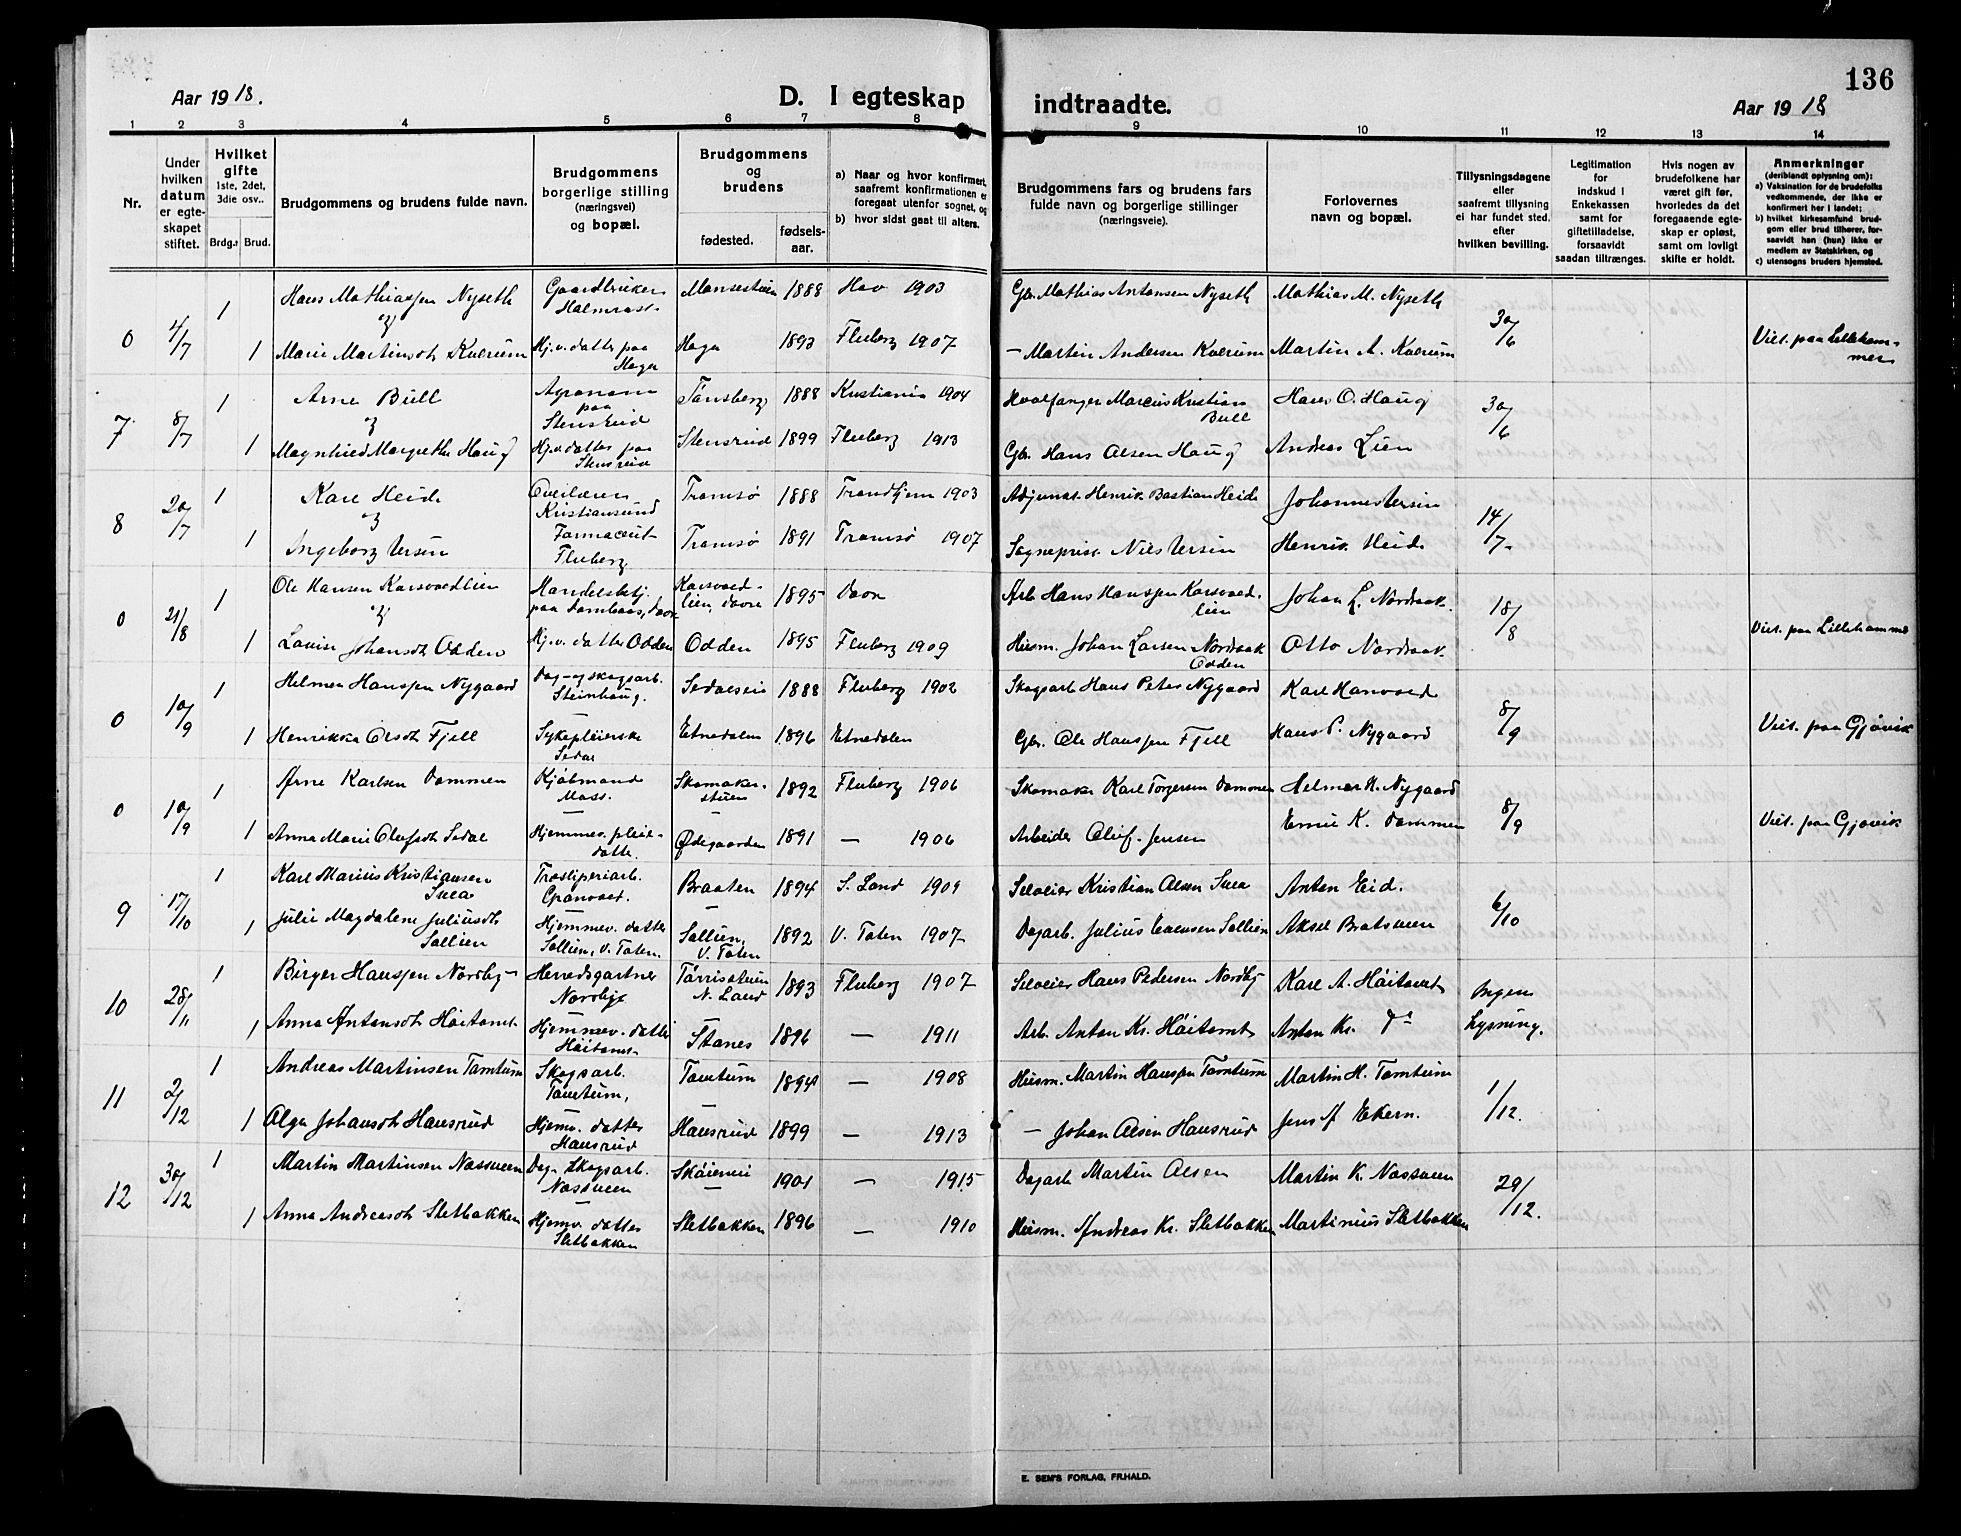 136
Aar 1918.
D. I egteskap indtraadte.
Aar 1918
1 2 3 4 5 6 7 8 9 10 11 12 13 14
Nr.
Under hvilken datum er egteskapet stiftet.
Hvilket gifte
1ste, 2det, 3die osv..
Brdg. Brud.
Brudgommens og brudens fulde navn.
Brudgommens borgerlige stilling (næringsvei) og bopæl.
Brudgommens og brudens
fødested.
fødselsaar.
a) Naar og hvor konfirmert, saafremt konfirmationen er foregaat utenfor sognet, og
b) hvor sidst gaat til alters.
Brudgommens fars og brudens fars fulde navn og borgerlige stillinger (næringsveie).
Forlovernes navn og bopæl.
Tillysningsdagene eller saafremt tillysning ei har fundet sted, efter hvilken bevilling.
Legitimation for indskud i Enkekassen samt for giftetilladelse, forsaavidt saadan tiltrænges.
Hvis nogen av brudefolkene har været gift før, hvorledes da det foregaaende egteskap er opløst, samt om lovligt skifte er holdt.
Anmerkninger (deriblandt oplysning om):
a) Vaksination for de brudefolks vedkommende, der ikke er konfirmert her i landet;
b) hvilket kirkesamfund brudgom eller brud tilhører, forsaavidt han (hun) ikke er medlem av Statskirken, og
c) utensogns bruders hjemsted.
0 4/7 1 Hans Mathiassen Nyseth Gaardbruker 1888 Hov 1903 Gbr. Mathias Antonsen Nyseth Mathias M. Nyseth 30/6
og
1 Marie Martinsdt. Kværum Hj.v. datter paa Haga Haga 1893 Fluberg 1907 — Martin Andersen Kværum Martin A. Kværum Viet. paa Lillehammer
7 8/7 1 Arne Bull Agronom paa Stensrud Tønsberg 1888 Kristiania 1904 Hvalfanger Marcus Kristian Bull Hans O. Haug 30/6
og
1 Magnhild Margrethe Haug Hj.v. datter paa Stensrud Stensrud 1899 Fluberg 1913 Gbr. Hans Olsen Haug Andreas Lien
8 20/7 1 Karl Heide Kristiansund Tromsø 1888 Trondhjem 1903 Adjunct Henrik Bastian Heide 14/7
og
1 Ingeborg Farmaceut Fluberg Tromsø 1891 Tromsø 1907 Sognepr. Nils Henrik Heide
0 21/8 1 Ole Hansen Korsvoldlien Handelsbetj. paa Dombaas, Dovre Korsvoldlien, Dovre 1895 Dovre Arb. Hans Hanssen Korsvoldlien Johan L. Nordraak 18/8
og
1 Lovise Johansdt. Odden Hj.v. datter Odden Odden 1895 Fluberg 1909 Husm. Johan Larsen Nordraak Odden Otto Nordraak Viet. paa Lillehammer
0 10/9 1 Helmer Hanssen Nygaard Dag- og skogsarb. Steinhaug. 1888 Fluberg 1902 Skogsarb. Hans Peter Nygaard Karl Hanvold 8/9
1 Henrikke Olsdt. Fjell Sykepleierske Sedal Etnedalen 1896 Etnedalen Gbr. Ole Hanssen Fjell Hans P. Nygaard Viet. paa Gjøvik
0 10/9 1 Arne Karlsen Dammen Kjøbmand Moss. Skomakerstuen 1892 Fluberg 1906 Skomaker Karl Torgersen Dammen Helmer H. Nygaard 8/9
1 Anna Marie Olufsdt. Sedal Hjemmev. pleiedatter Ødegaarden 1891 — 1906 Arbeider Oluf. Jensen Emil K. Dammen Viet. paa Gjøvik
9 17/10 1 Karl Marius Kristiansen Tresliperiarb. Granvold. Braaten 1894 S. Land 1909 Selveier Kristian Olsen Anton Eid. 6/10
1 Julie Magdalene Juliusdt. Sollien Hjemmev. datter Sollien, V. Toten. Sollien, V. Toten 1892 V. Toten 1907 Dagarb. Julius Sollien Aksel Bratsveen
10 28/11 1 Birger Hanssen Nordby Herredsgartner Nordby N. Land 1893 Fluberg 1907 Selveier Hans Pedersen Nordby Karl A. Høitomt Ingen
1 Anna Antonsdt. Høitomt Hjemmev. datter Høitomt Stanes 1896 — 1911 Arb. Anton Kr. Høitomt Anton Kr. do Lysning.
11 2/12 1 Andreas Martinsen Tomtum Skogsarb. Tomtum, Tomtum 1894 — 1908 Husm. Martin Hanssen Tomtum Martin H. Tomtum 1/12.
1 Olga Johansdt. Hansrud Hjemv. datter Hansrud Hansrud 1899 — 1913 — Johan Olsen Hansrud Jens J. Ekern.
12 30/12 1 Martin Martinsen Næssveen Dag- Skogsarb. Næssveen 1901 — 1915 Dagarb. Martin Olsen Martin K. Næssveen 29/12.
1 Anna Andreasdt. Sletbakken Hjemv. datter Sletbakken Sletbakken 1896 — 1910 Husm. Andreas Kr. Sletbakken Martinius Sletbakken
E. SEM'S FORLAG, FR.HALD.